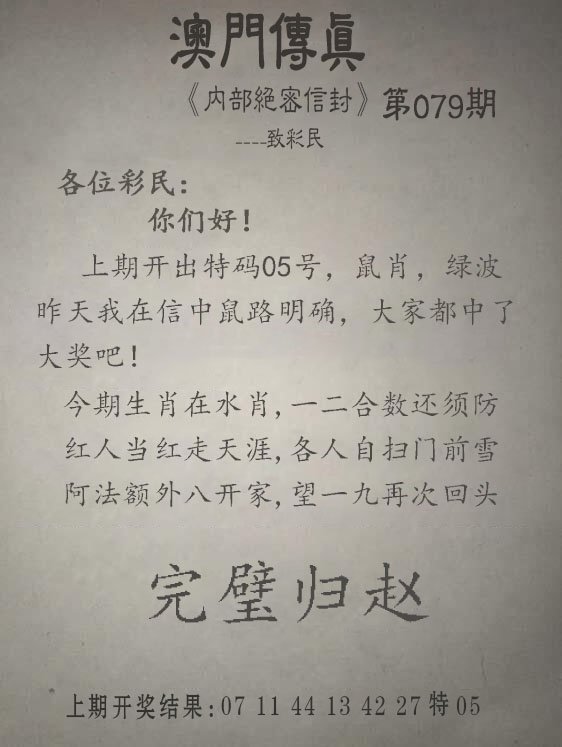 澳門傳真
《内部絕密信封》第079期
----致彩民
各位彩民：
你们好！
上期开出特码05号，鼠肖，绿波
昨天我在信中鼠路明确，大家都中了
大奖吧！
今期生肖在水肖,一二合数还须防
红人当红走天涯,各人自扫门前雪
阿法额外八开家,望一九再次回头
完璧归赵
上期开奖结果:07 11 44 13 42 27 特 05